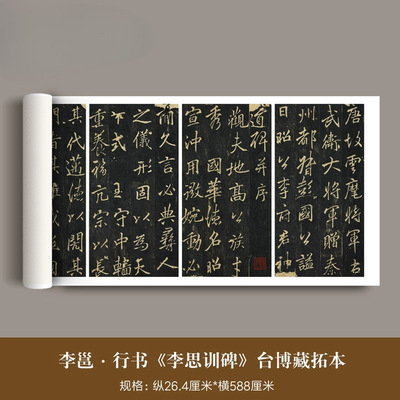 唐故雲麾將軍右
武衛大將軍贈秦
州都督彭國公謚
曰昭公李府君神
道碑并序
觀夫地高公族才
秀國華德名昭
宣沖用微婉動必
簡久言必典彝人
之儀形固以為天
下式至守中轄
重養福亢宗以長
其代邁德以閱其
李邕·行书《李思训碑》台博藏拓本
规格：纵26.4厘米*横588厘米